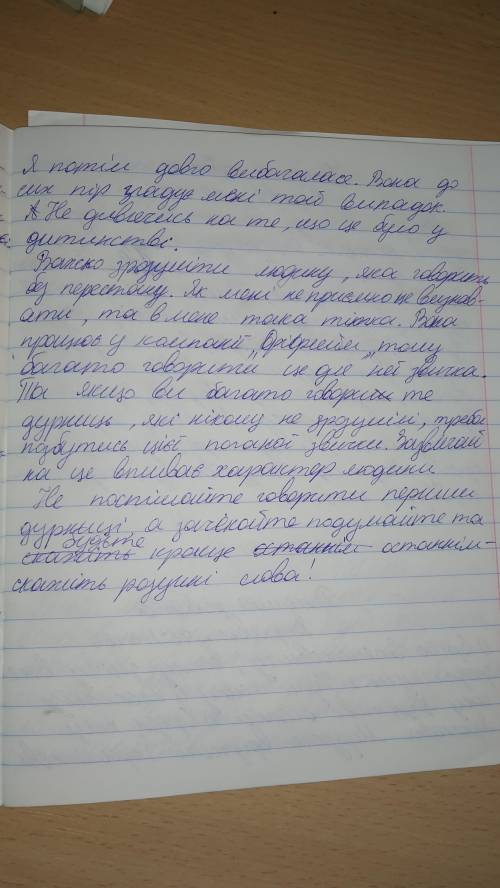 Я потім довго вибачалася. Вона до
сих пір згадує мені той випадок.
Не дивлячись на те, що це було у
дитинстві.
Важко зрозуміти людину, яка говорить
без перестану. Як мені не приємно не визнав-
ати, та в мене така тітка. Вона
працює у компанії „Оріфлейм„ тому
багато говорити це для неї звичка.
Та якщо ви багато говорите
дурниць, які нікому не зрозумілі, треба
позбутись цієї поганої звички. Зазвичай
на це впливає характер людини
Не поспішайте говорити першим
дурныці, а зачекайте подумайте та
будьте краще останнім-
скажіть розумні слова!